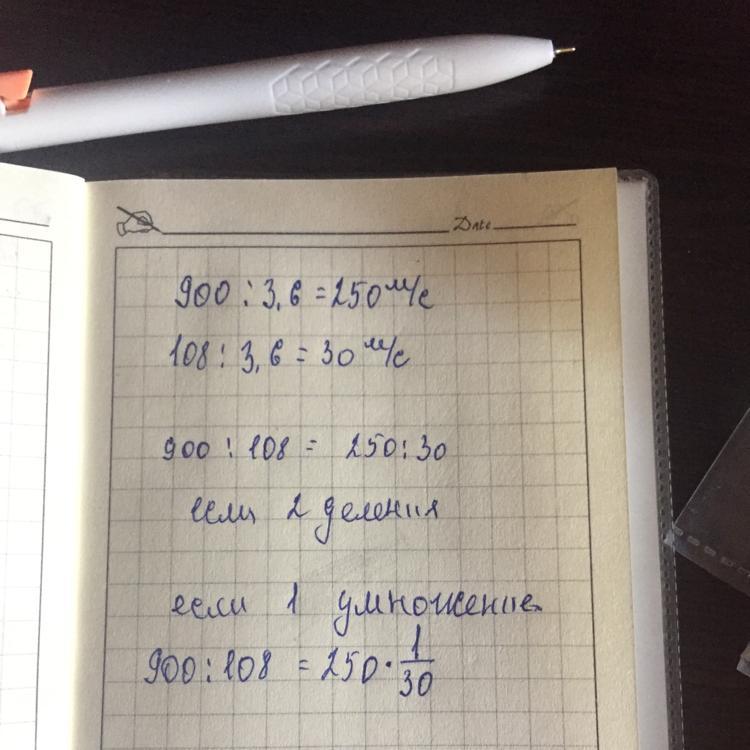 Date
900 : 3,6 = 250 м/с
108 : 3,6 = 30 м/с
900 : 108 = 250 : 30
если 2 деления
если 1 умножение
900 : 108 = 250 · 1/30